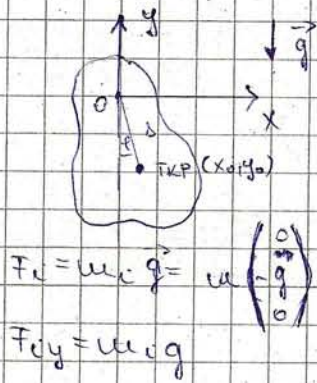 y
g⃗
O
x
s
φ
T K P (x₀, y₀)
F_i = m_i g⃗ = m (0 -g 0)
F_iy = m_i g